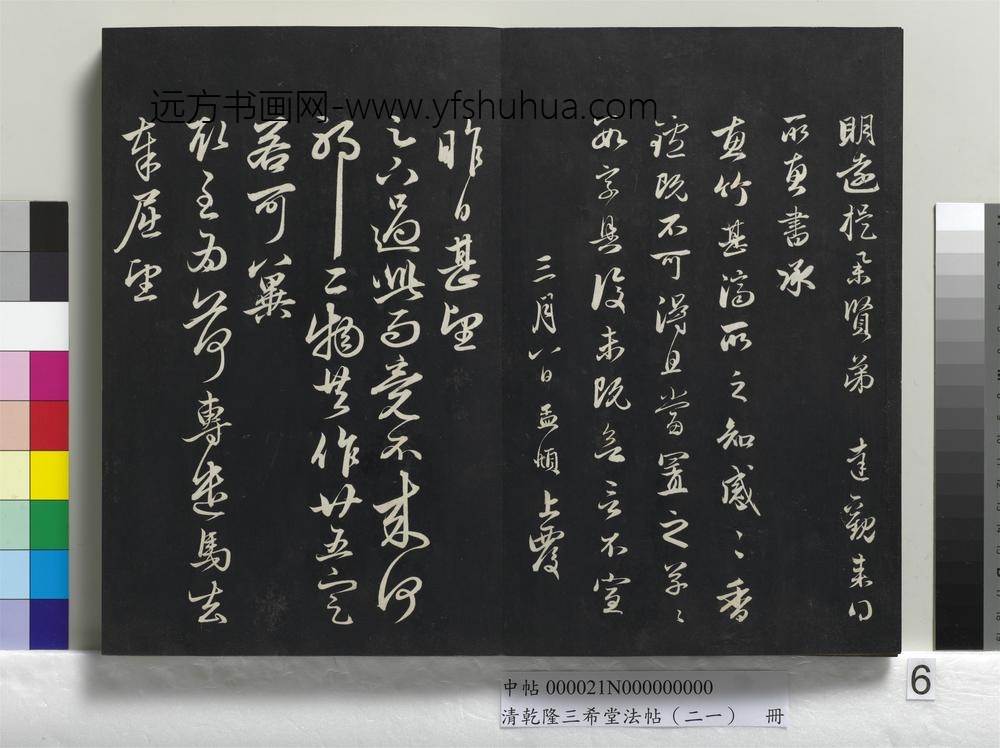 明遠提舉賢弟 達觀來
所惠書承
惠竹甚濟所乏知感〻香
鑪既不可得且當置之草〻
數字具復未既言不宣
三月八日孟頫上覆
昨日甚望
過此而竟不來何
耶二物共作廿五定
若可
至為荷專遣馬去
奉屈望
远方书画网-www.yfshuhua.com
中帖 000021N000000000
清乾隆三希堂法帖（二一） 冊
6